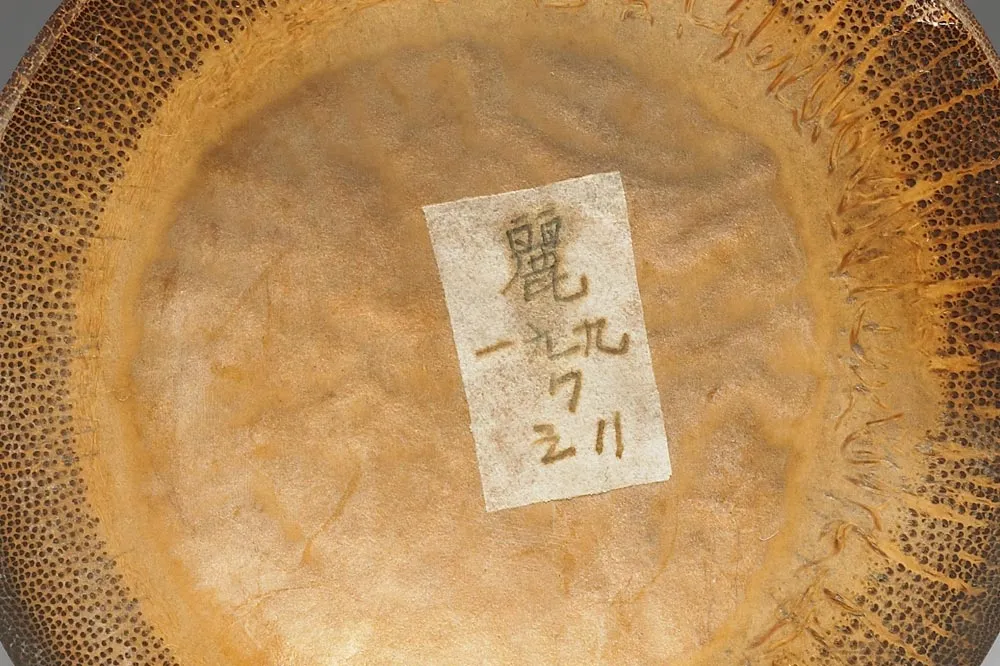 麗
一九九
7
三 11